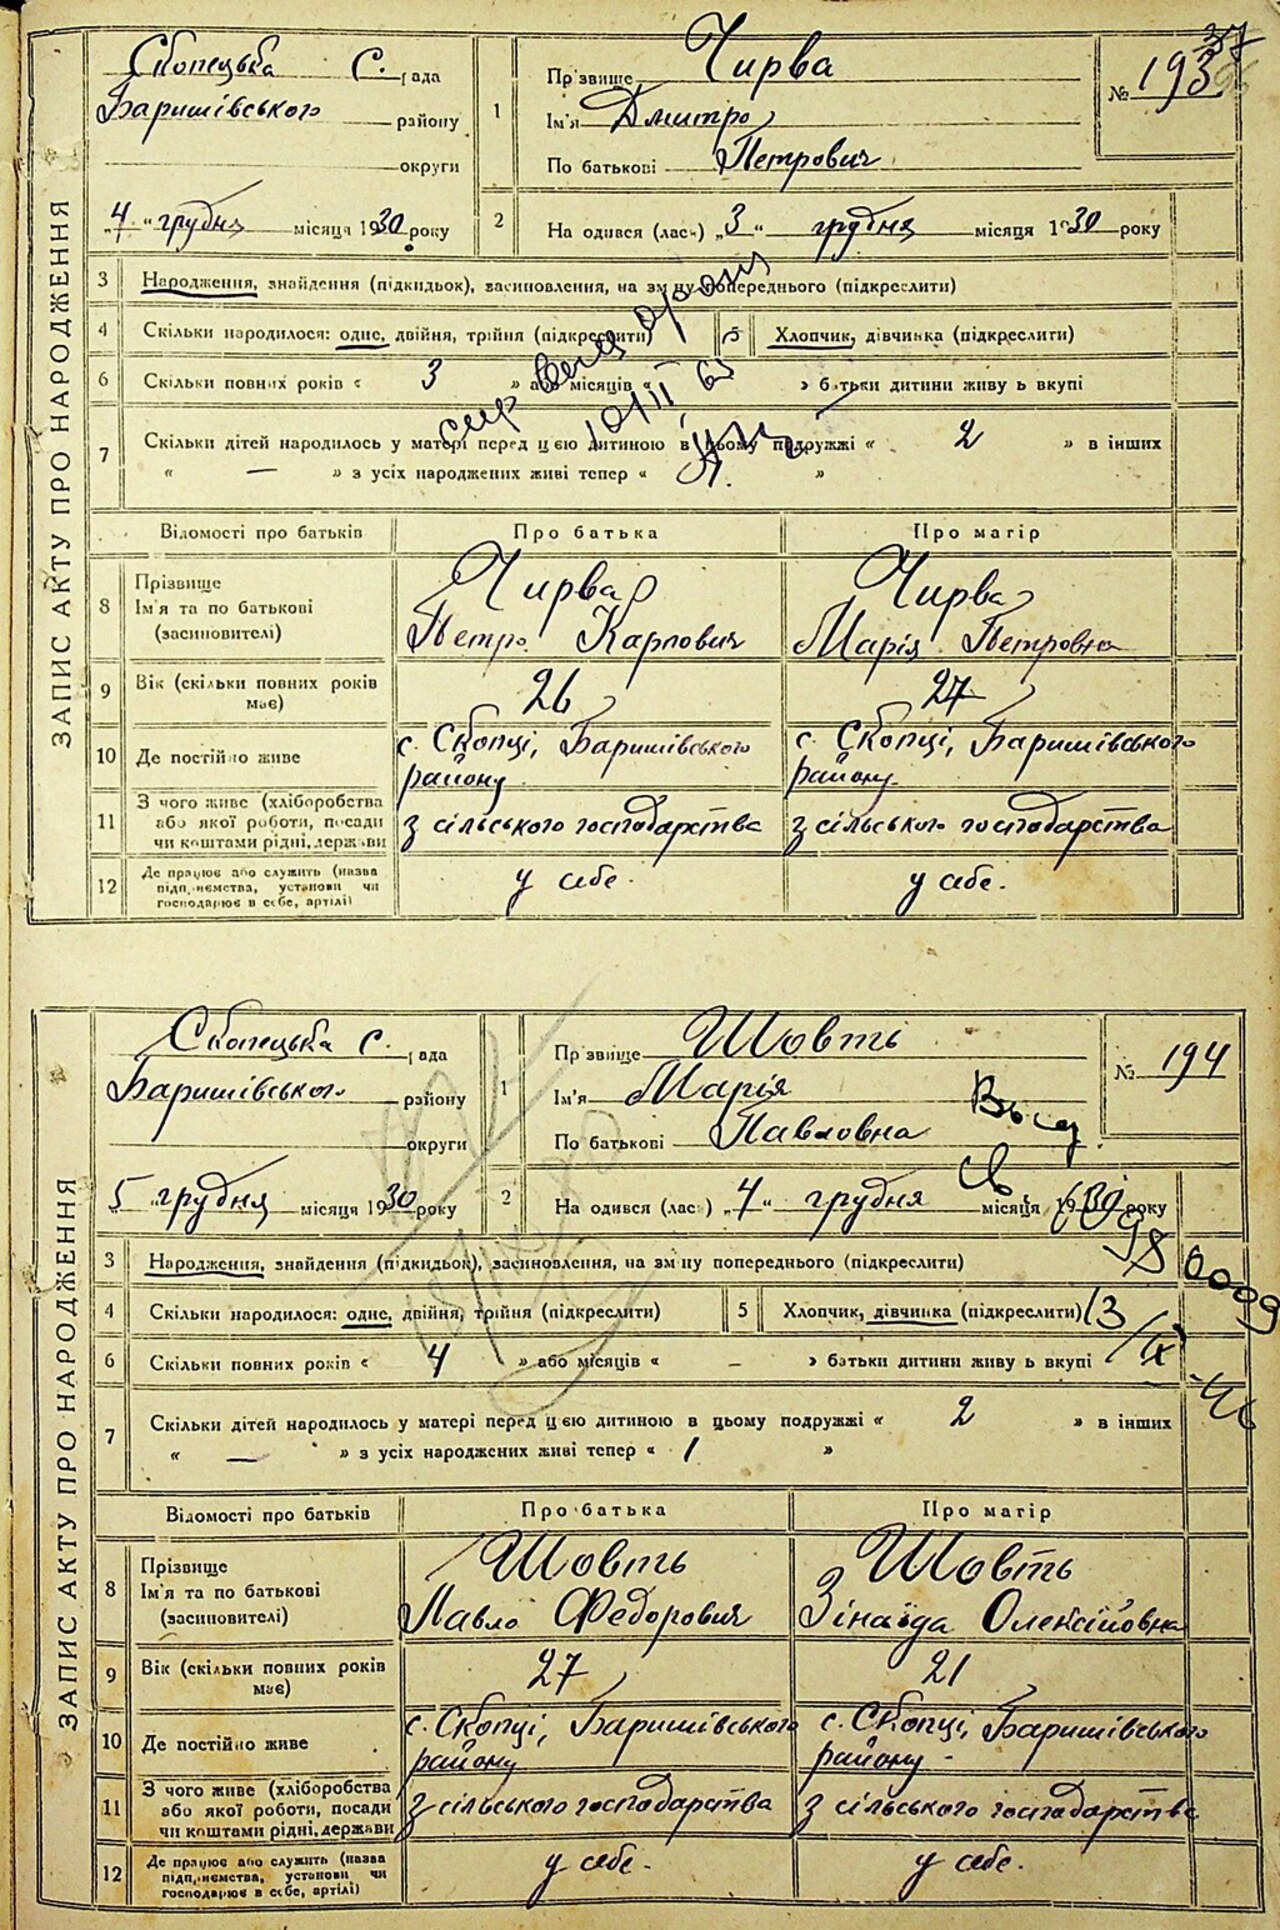 ЗАПИС АКТУ ПРО НАРОДЖЕННЯ
Скопецька С. рада
Баришівського району
округи
„4“ грудня місяця 1930 року
1 Прізвище Чирва
Ім'я Дмитро
По батькові Петрович
№ 193
37
2 На одився (лась) „3“ грудня місяця 1930 року
3 Народження, знайдення (підкидьок), засиновлення, на зм ну попереднього (підкреслити)
4 Скільки народилося: одне, двійня, трійня (підкреслити) 5 Хлопчик, дівчинка (підкреслити)
6 Скільки повних років « 3 » або місяців « » батьки дитини живу ь вкупі
7 Скільки дітей народилось у матері перед цією дитиною в цьому подружжі « 2 » в інших
« — » з усіх народжених живі тепер « »
Відомості про батьків Про батька Про матір
8 Прізвище Чирва Чирва
Ім'я та по батькові Петро Карпович Марія Петровна
(засиновителі)
9 Вік (скільки повних років має) 26 27
10 Де постійно живе с. Скопці, Баришівського району с. Скопці, Баришівського району
11 З чого живе (хліборобства або якої роботи, посади чи коштами рідні, держави з сільського господарства з сільського господарства
12 Де працює або служить (назва підп.иємства, установи чи господарює в себе, артілі) у себе. у себе.
ЗАПИС АКТУ ПРО НАРОДЖЕННЯ
Скопецька С. рада
Баришівського району
округи
„5“ грудня місяця 1930 року
1 Пр звище Шовть
Ім'я Марія
По батькові Павловна
№ 194
2 На одився (лась) „4“ грудня місяця 1930 року
3 Народження, знайдення (підкидьок), засиновлення, на зм ну попереднього (підкреслити)
4 Скільки народилося: одне, двійня, трійня (підкреслити) 5 Хлопчик, дівчинка (підкреслити)
6 Скільки повних років « 4 » або місяців « – » батьки дитини живу ь вкупі
7 Скільки дітей народилось у матері перед цією дитиною в цьому подружжі « 2 » в інших
« — » з усіх народжених живі тепер « 1 »
Відомості про батьків Про батька Про матір
8 Прізвище Шовть Шовть
Ім'я та по батькові Павло Федорович Зінаїда Олексіївна
(засиновителі)
9 Вік (скільки повних років має) 27 21
10 Де постійно живе с. Скопці, Баришівського району с. Скопці, Баришівського району
11 З чого живе (хліборобства або якої роботи, посади чи коштами рідні, держави з сільського господарства з сільського господарства
12 Де працює або служить (назва підп.иємства, установи чи господарює в себе, артілі) у себе. у себе.